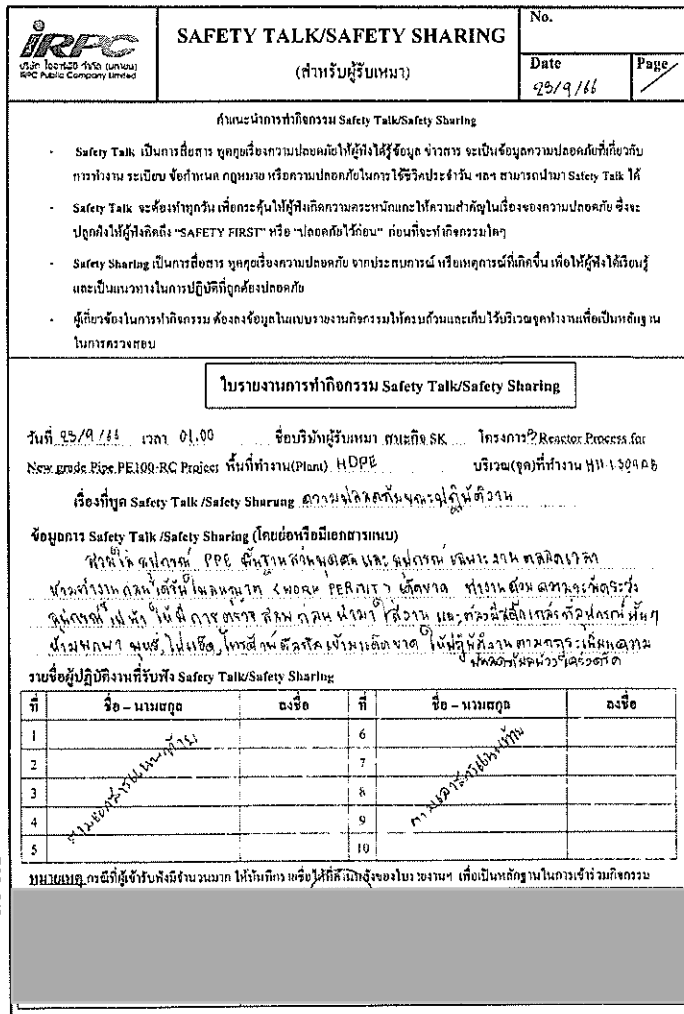 IRPC
บริษัท ไออาร์พีซี จำกัด (มหาชน)
IRPC Public Company Limited
SAFETY TALK/SAFETY SHARING
(สำหรับผู้รับเหมา)
No.
Date
Page
23/9/66
คำแนะนำการทำกิจกรรม Safety Talk/Safety Sharing
- Safety Talk เป็นการสื่อสาร พูดคุยเรื่องความปลอดภัยให้ผู้ฟังได้รู้ข้อมูล ข่าวสาร จะเป็นข้อมูลความปลอดภัยที่เกี่ยวกับ
การทำงาน ระเบียบ ข้อกำหนด กฎหมาย หรือความปลอดภัยในการใช้ชีวิตประจำวัน ฯลฯ สามารถนำมา Safety Talk ได้
- Safety Talk จะต้องทำทุกวัน เพื่อกระตุ้นให้ผู้ฟังเกิดความตระหนักและให้ความสำคัญในเรื่องของความปลอดภัย ซึ่งจะ
ปลูกฝังให้ผู้ฟังคิดถึง "SAFETY FIRST" หรือ "ปลอดภัยไว้ก่อน" ก่อนที่จะทำกิจกรรมใดๆ
- Safety Sharing เป็นการสื่อสาร พูดคุยเรื่องความปลอดภัย จากประสบการณ์ หรือเหตุการณ์ที่เกิดขึ้น เพื่อให้ผู้ฟังได้เรียนรู้
และเป็นแนวทางในการปฏิบัติที่ถูกต้องปลอดภัย
- ผู้เกี่ยวข้องในการทำกิจกรรม ต้องลงข้อมูลในแบบรายงานกิจกรรมให้ครบถ้วนและเก็บไว้บริเวณจุดทำงานเพื่อเป็นหลักฐาน
ในการตรวจสอบ
ใบรายงานการทำกิจกรรม Safety Talk/Safety Sharing
วันที่ 23/9/66 เวลา 01.00 ชื่อบริษัทผู้รับเหมา ธนะกิจ SK โครงการ Reactor Process for
New grade Pipe PE100-RC Project พื้นที่ทำงาน(Plant) HDPE บริเวณ(จุด)ที่ทำงาน
เรื่องที่พูด Safety Talk /Safety Sharung ความปลอดภัยขณะปฏิบัติงาน
ข้อมูลการ Safety Talk /Safety Sharing (โดยย่อหรือมีเอกสารแนบ)
สวมใส่อุปกรณ์ PPE พื้นฐานส่วนบุคคล และอุปกรณ์เฉพาะงานตลอดเวลา
ห้ามทำงานก่อนได้รับใบอนุญาต <WORK PERMIT> เด็ดขาด ทำงานด้วยความระมัดระวัง
อุปกรณ์ไฟฟ้าให้มีการตรวจสอบก่อนนำมาใช้งาน และต้องมีสติ๊กเกอร์ที่อุปกรณ์นั้นๆ
ห้ามพกพา บุหรี่, ไฟแช็ค, โทรศัพท์มือถือเข้ามาเด็ดขาด ให้ปฏิบัติงานตามกฎระเบียบความ
ปลอดภัยอย่างเคร่งครัด
รายชื่อผู้ปฏิบัติงานที่รับฟัง Safety Talk/Safety Sharing
ที่ ชื่อ – นามสกุล ลงชื่อ ที่ ชื่อ – นามสกุล ลงชื่อ
1 6
2 7
3 8
4 9
5 10
ตามเอกสารแนบท้าย
ตามเอกสารแนบท้าย
หมายเหตุ กรณีที่ผู้เข้ารับฟังมีจำนวนมาก ให้บันทึกรายชื่อไว้ที่ด้านหลังของใบรายงานฯ เพื่อเป็นหลักฐานในการเข้าร่วมกิจกรรม